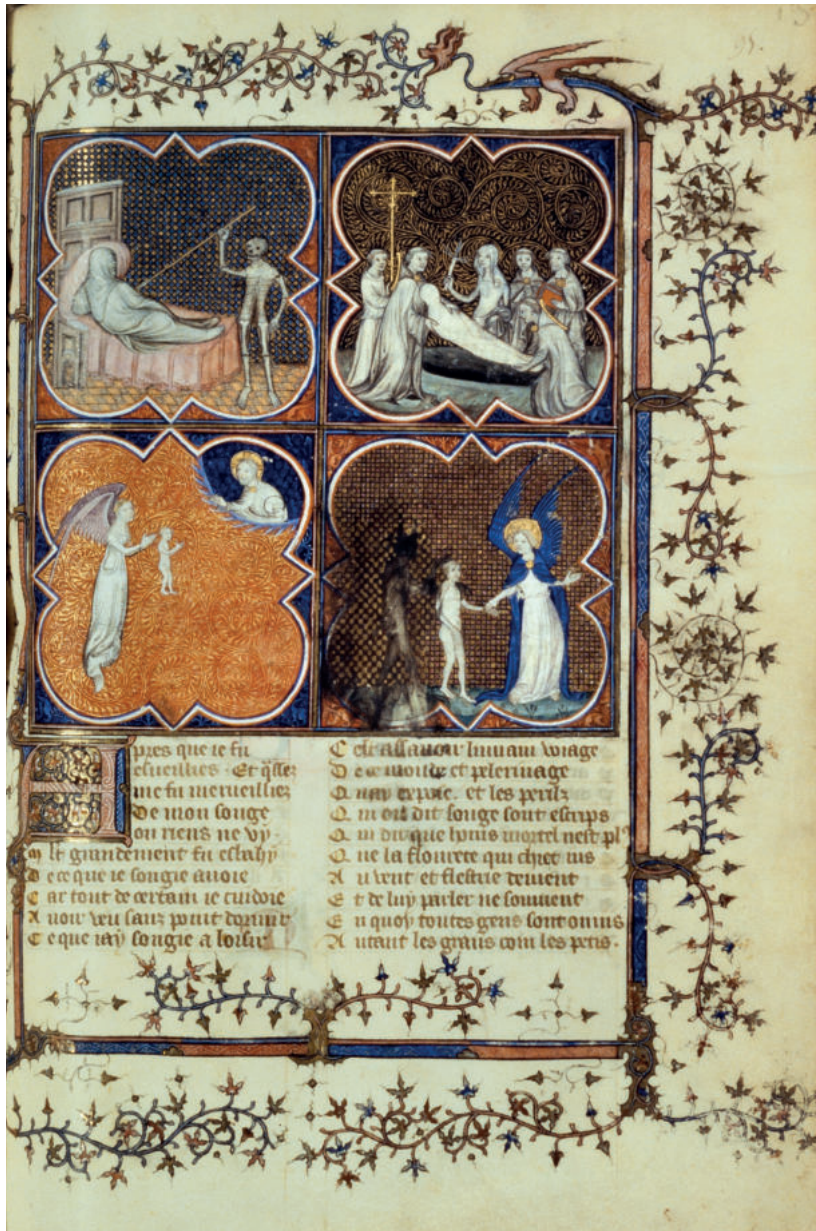 Apres que ie fu
esueillies Et q̃lle
me fu merueillie
De mon songe
ou riens ne vy
Mlt grandement fu esbahy
De ce que ie songie auoie
Car tout de certain ie cuidoie
Auoir veu sanz point dormir
Ce que iay songie a loisir
Cest assauoir viuant voiage
De ce monde et pelerinage
et les perilz
Qui ou dit songe sont escrips
Qui dit que mortel nest pl9
Que la flourete qui chiet ius
Au vent et flestrie deuient
Et de luy parler ne souuient
En quoy toutes gens sont omnis
Autant les grans com les petis.